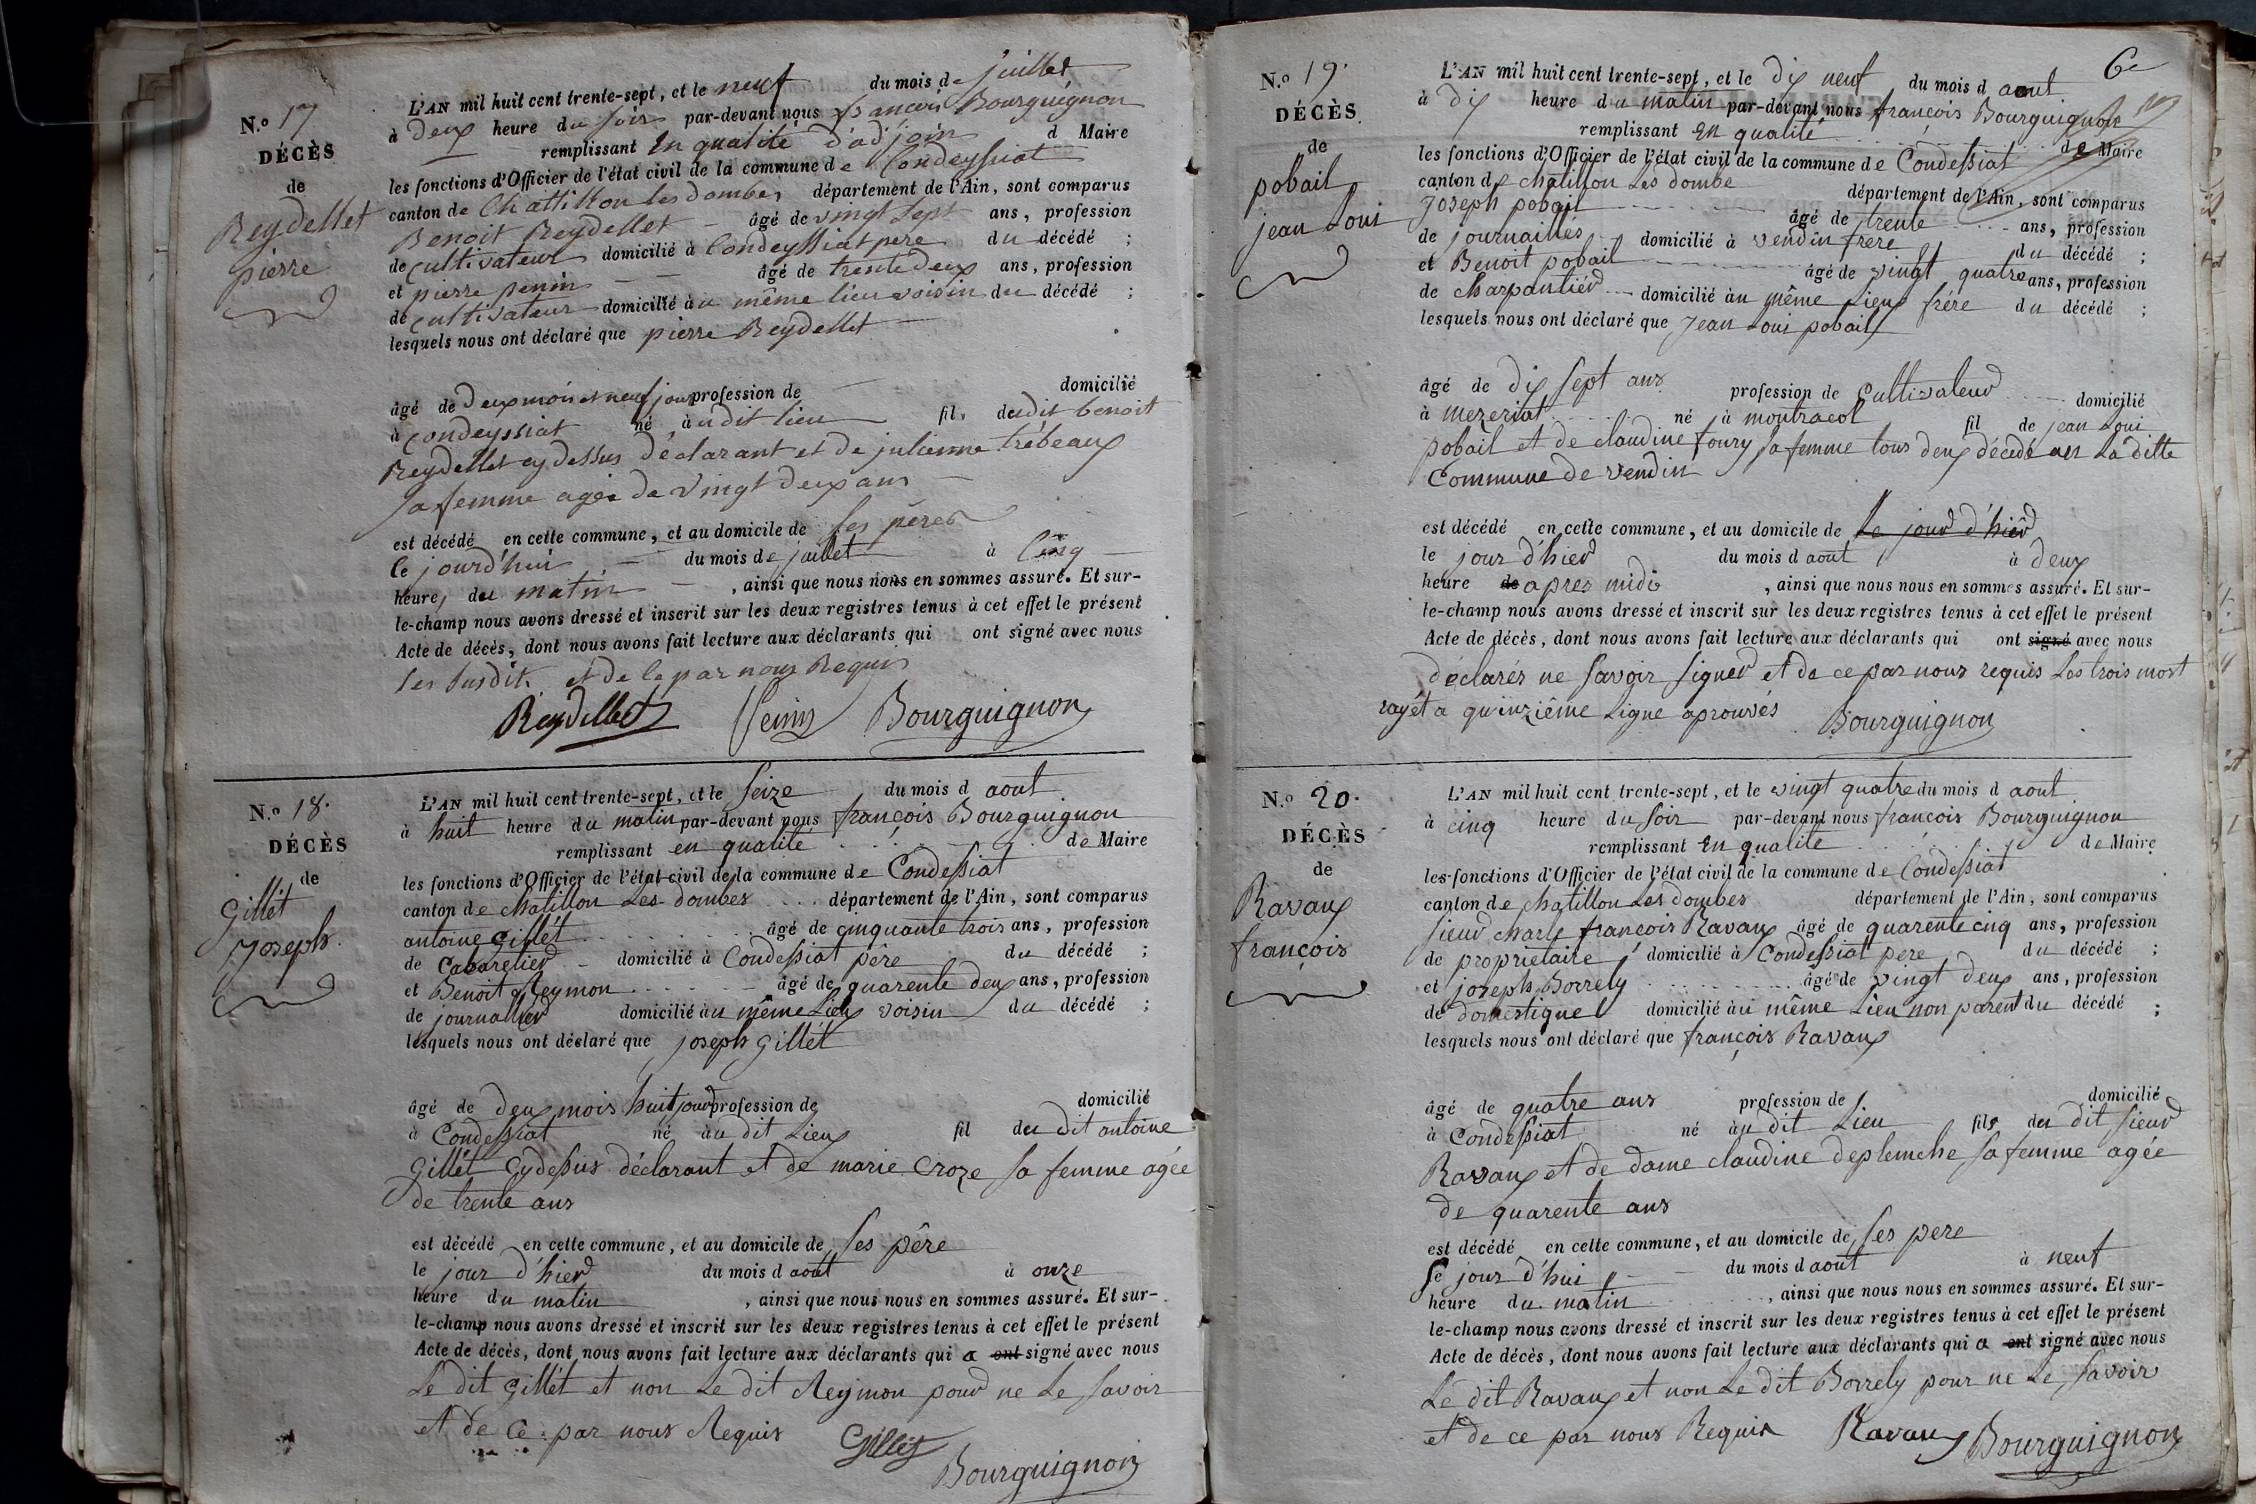 N.o 17
DÉCÈS
de
Reydellet
pierre
L'AN mil huit cent trente-sept, et le neuf du mois de juillet
à Deux heure du soir par-devant nous françois Bourguignon
remplissant En qualité d'adjoin d Maire
les fonctions d'Officier de l'état civil de la commune de Condeyssiat
canton de Chattillon les dombes département de l'Ain, sont comparus
Benoit Reydellet âgé de vingt sept ans, profession
de cultivateur domicilié à Condeyssiat pere du décédé ;
et pierre penin âgé de trente deux ans, profession
de cultivateur domicilié àu même lieu voisin du décédé ;
lesquels nous ont déclaré que pierre Reydellet
âgé de Deux mois et neuf jour profession de domicilié
à condeyssiat né àu dit lieu fil. du dit benoit
Reydellet cy dessus déclarant et de julienne trébeaux
sa femme agée de vingt deux ans
est décédé en cette commune, et au domicile de ses pères
le jourd'hui du mois de juillet à Cinq
heure, du matin , ainsi que nous nous en sommes assuré. Et sur-
le-champ nous avons dressé et inscrit sur les deux registres tenus à cet effet le présent
Acte de décès, dont nous avons fait lecture aux déclarants qui ont signé avec nous
les susdits et de ce par nous Requis
Reydellet Penin Bourguignon
N.o 18.
DÉCÈS
de
Gillét
Joseph.
L'AN mil huit cent trente-sept, et le seize du mois d aout
à huit heure du matin par-devant nous françois Bourguignon
remplissant en qualité de Maire
les fonctions d'Officier de l'état civil de la commune de Condessiat
canton de chatillon Les dombes département de l'Ain, sont comparus
antoine Gillét âgé de cinquante trois ans, profession
de Cabaretier domicilié à Condessiat père du décédé ;
et Benoit Reymon âgé de quarente deux ans, profession
de journallier domicilié àu même Lieu voisin du décédé ;
lesquels nous ont déclaré que joseph Gillét
âgé de deux mois huit jour profession de domicilié
à Condessiat né àu dit Lieu fil du dit antoine
Gillét Cydessus déclarant et de marie Croze sa femme agée
de trente ans
est décédé en cette commune, et au domicile de ses père
le jour d'hier du mois d aout à onze
heure du matin , ainsi que nous nous en sommes assuré. Et sur-
le-champ nous avons dressé et inscrit sur les deux registres tenus à cet effet le présent
Acte de décès, dont nous avons fait lecture aux déclarants qui a ont signé avec nous
Le dit Gillét et non Le dit Reymon pour ne Le savoir
et de ce par nous Requis Gillet
Bourguignon
6e
N.o 19.
DÉCÈS
de
pobail
jean Loui
L'AN mil huit cent trente-sept, et le dix neuf du mois d aout
à dix heure du matin par-devant nous françois Bourguignon
remplissant En qualité de Maire
les fonctions d'Officier de l'état civil de la commune de Condessiat
canton de chatillon Les dombe département de l'Ain, sont comparus
Joseph pobail âgé de trente ans, profession
de journaillier domicilié à vendin frere du décédé ;
et Benoit pobail âgé de vingt quatre ans, profession
de charpantier domicilié àu même Lieu frére du décédé ;
lesquels nous ont déclaré que Jean Loui pobail
âgé de dix sept ans profession de cultivateur domicilié
à mezeriat né à montracol fil de jean Loui
pobail et de claudine foury sa femme tous deux décédé en La ditte
Commune de vendin
est décédé en cette commune, et au domicile de Le jour d'hier
le jour d'hier du mois d aout à deux
heure de apres midi , ainsi que nous nous en sommes assuré. Et sur-
le-champ nous avons dressé et inscrit sur les deux registres tenus à cet effet le présent
Acte de décès, dont nous avons fait lecture aux déclarants qui ont signé avec nous
déclarés ne savoir signer et de ce par nous requis Les trois mort
rayét a quinziême Ligne aprouvés Bourguignon
N.o 20.
DÉCÈS
de
Ravaux
françois
L'AN mil huit cent trente-sept, et le vingt quatre du mois d aout
à cinq heure du soir par-devant nous françois Bourguignon
remplissant En qualité de Maire
les fonctions d'Officier de l'état civil de la commune de Condessiat
canton de chatillon Les dombes département de l'Ain, sont comparus
sieur charle francois Ravaux âgé de quarente cinq ans, profession
de proprietaire domicilié à Condessiat pere du décédé ;
et joseph Borrely âgé de vingt deux ans, profession
de domestique domicilié àu même Lieu non parent du décédé ;
lesquels nous ont déclaré que françois Ravaux
âgé de quatre ans profession de domicilié
à Condessiat né àu dit Lieu fils du dit sieur
Ravaux et de dame claudine deplenche sa femme agée
de quarente ans
est décédé en cette commune, et au domicile de ses pere
le jour d'hui du mois d aout à neuf
heure du matin , ainsi que nous nous en sommes assuré. Et sur-
le-champ nous avons dressé et inscrit sur les deux registres tenus à cet effet le présent
Acte de décès, dont nous avons fait lecture aux déclarants qui a ont signé avec nous
Le dit Ravaux et non Le dit Borrely pour ne Le savoir
et de ce par nous Requis Ravaux Bourguignon